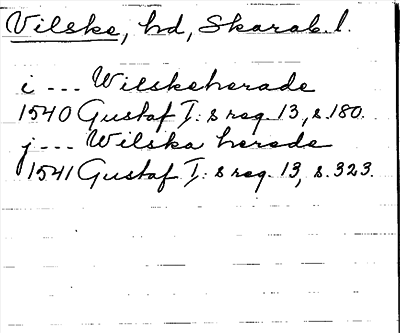 Vilske, hd, Skarab. l.
i --- Wilskeherade
1540 Gustaf I:s reg. 13, s. 180.
j --- Wilska herede
1541 Gustaf I:s reg. 13, s. 323.